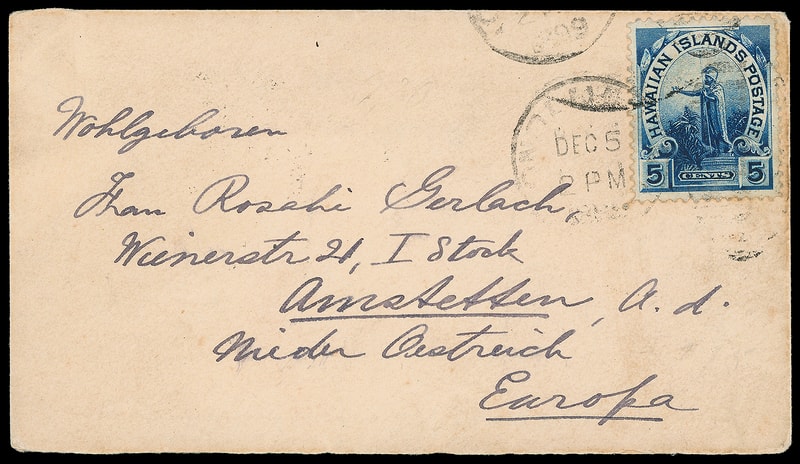 HAWAIIAN ISLANDS POSTAGE
5 CENTS 5
DEC 5
PM
Wohlgeboren
Frau Rosalie Gerlach,
Wienerstr 21, I Stock
Amstetten, A. d.
Nieder Oestreich
Europa